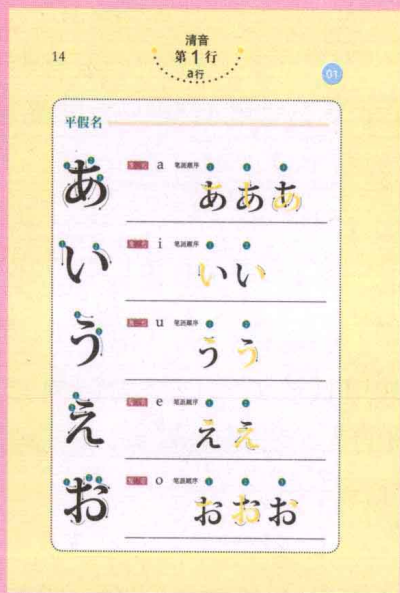 14
清音
第1行
a行
01
平假名
あ 发音 a 笔画顺序 1 2 3
あ あ あ
い 发音 i 笔画顺序 1 2
い い
う 发音 u 笔画顺序 1 2
う う
え 发音 e 笔画顺序 1 2
え え
お 发音 o 笔画顺序 1 2 3
お お お